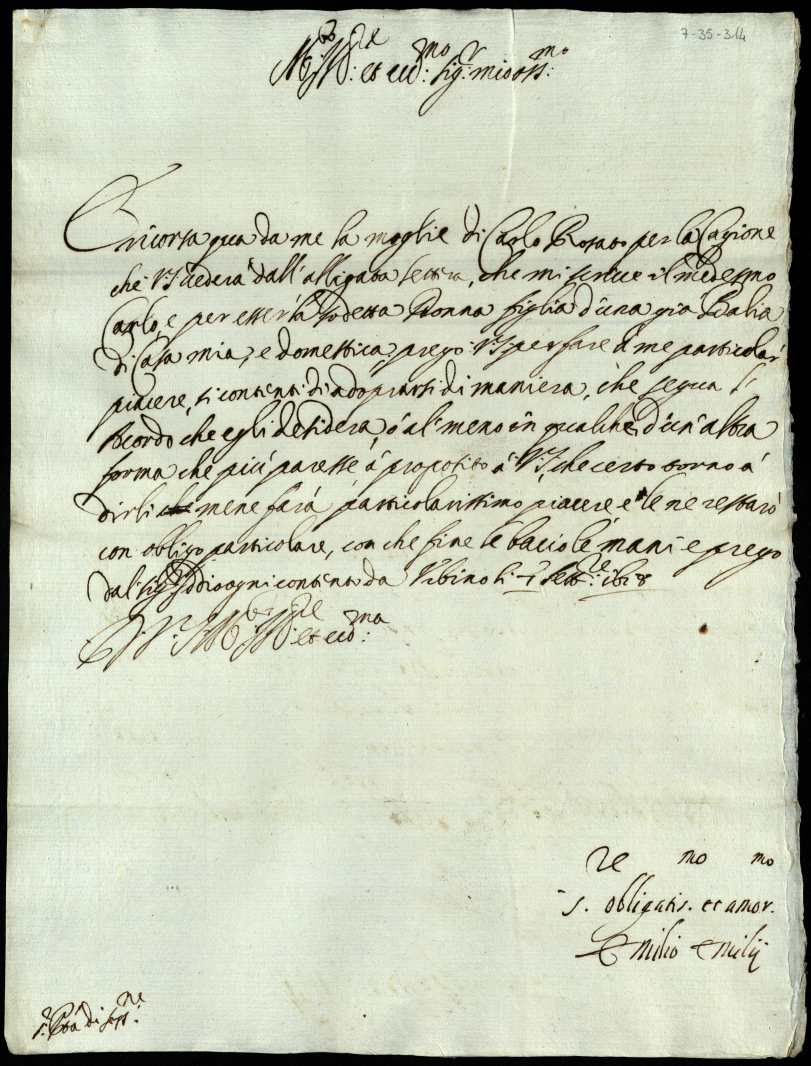 7-35-314
M.to Ill.re et ecc.mo sig.r mio oss.mo
È ricorsa qua da me la moglie di Carlo Rosato per la Cagione
che VS vederà dall'alligata lettera, che mi scrive il medesmo
Carlo, e per esser la sodetta Donna figlia d'una già Balia
di Casa mia, e domestica, prego VS per fare à me particolar
piacere, si contenti di adoprarsi di maniera, che segua l'
Acordo che egli desidera, ò al meno in qualche d'un'altra
forma che più paresse à proposito à VS, che certo torno à
dirli che mene farà particolarissimo piacere e le ne restarò
con obligo particolare, con che fine le bacio le mani e prego
dal sig.r Iddio ogni contento da Urbino li 7 sett.re 1618
D. V. S. M.to Ill.re et ecc.ma
s.re obligatis.mo et amor.mo
Emilio Emilij